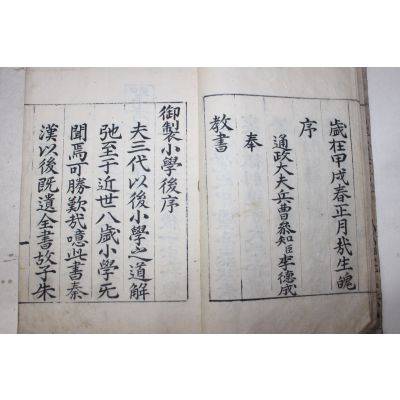 歲在甲戌春正月哉生魄
序
通政大夫兵曹叅知臣李德成
奉
敎書
御製小學後序
夫三代以後小學之道解
弛至于近世八歲小學旡
聞焉可勝歎哉噫此書秦
漢以後旣遺全書故子朱